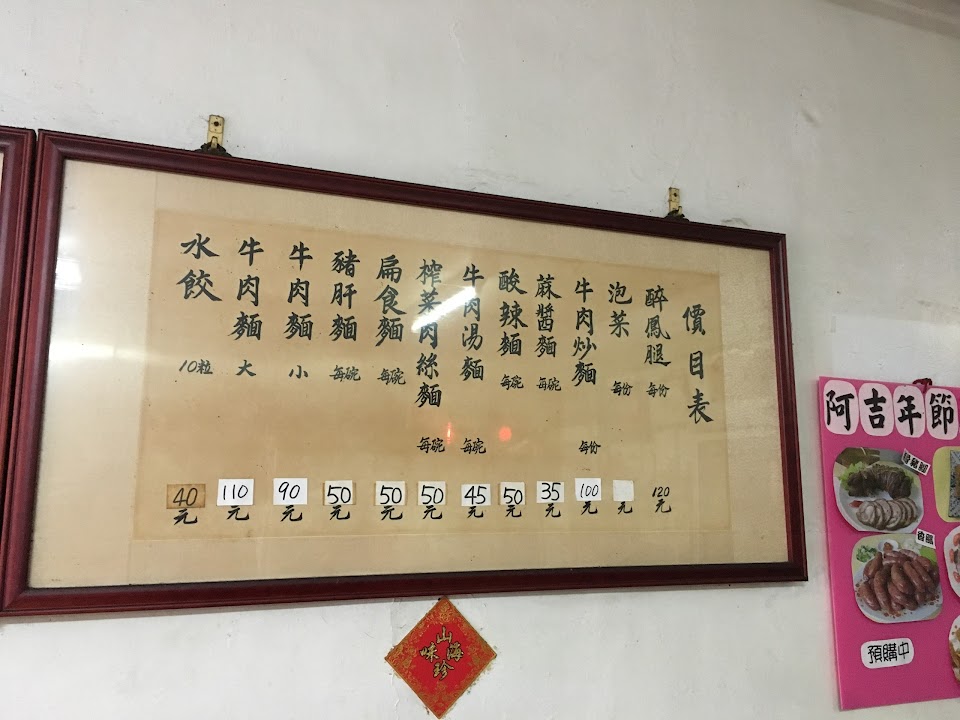 價目表
醉鳳腿 每份 120元
泡菜 每份 元
牛肉炒麵 每份 100元
蔴醬麵 每碗 35元
酸辣麵 每碗 50元
牛肉湯麵 每碗 45元
榨菜肉絲麵 每碗 50元
扁食麵 每碗 50元
豬肝麵 每碗 50元
牛肉麵 小 90元
牛肉麵 大 110元
水餃 10粒 40元
山海珍味
阿吉年節
香腸
預購中